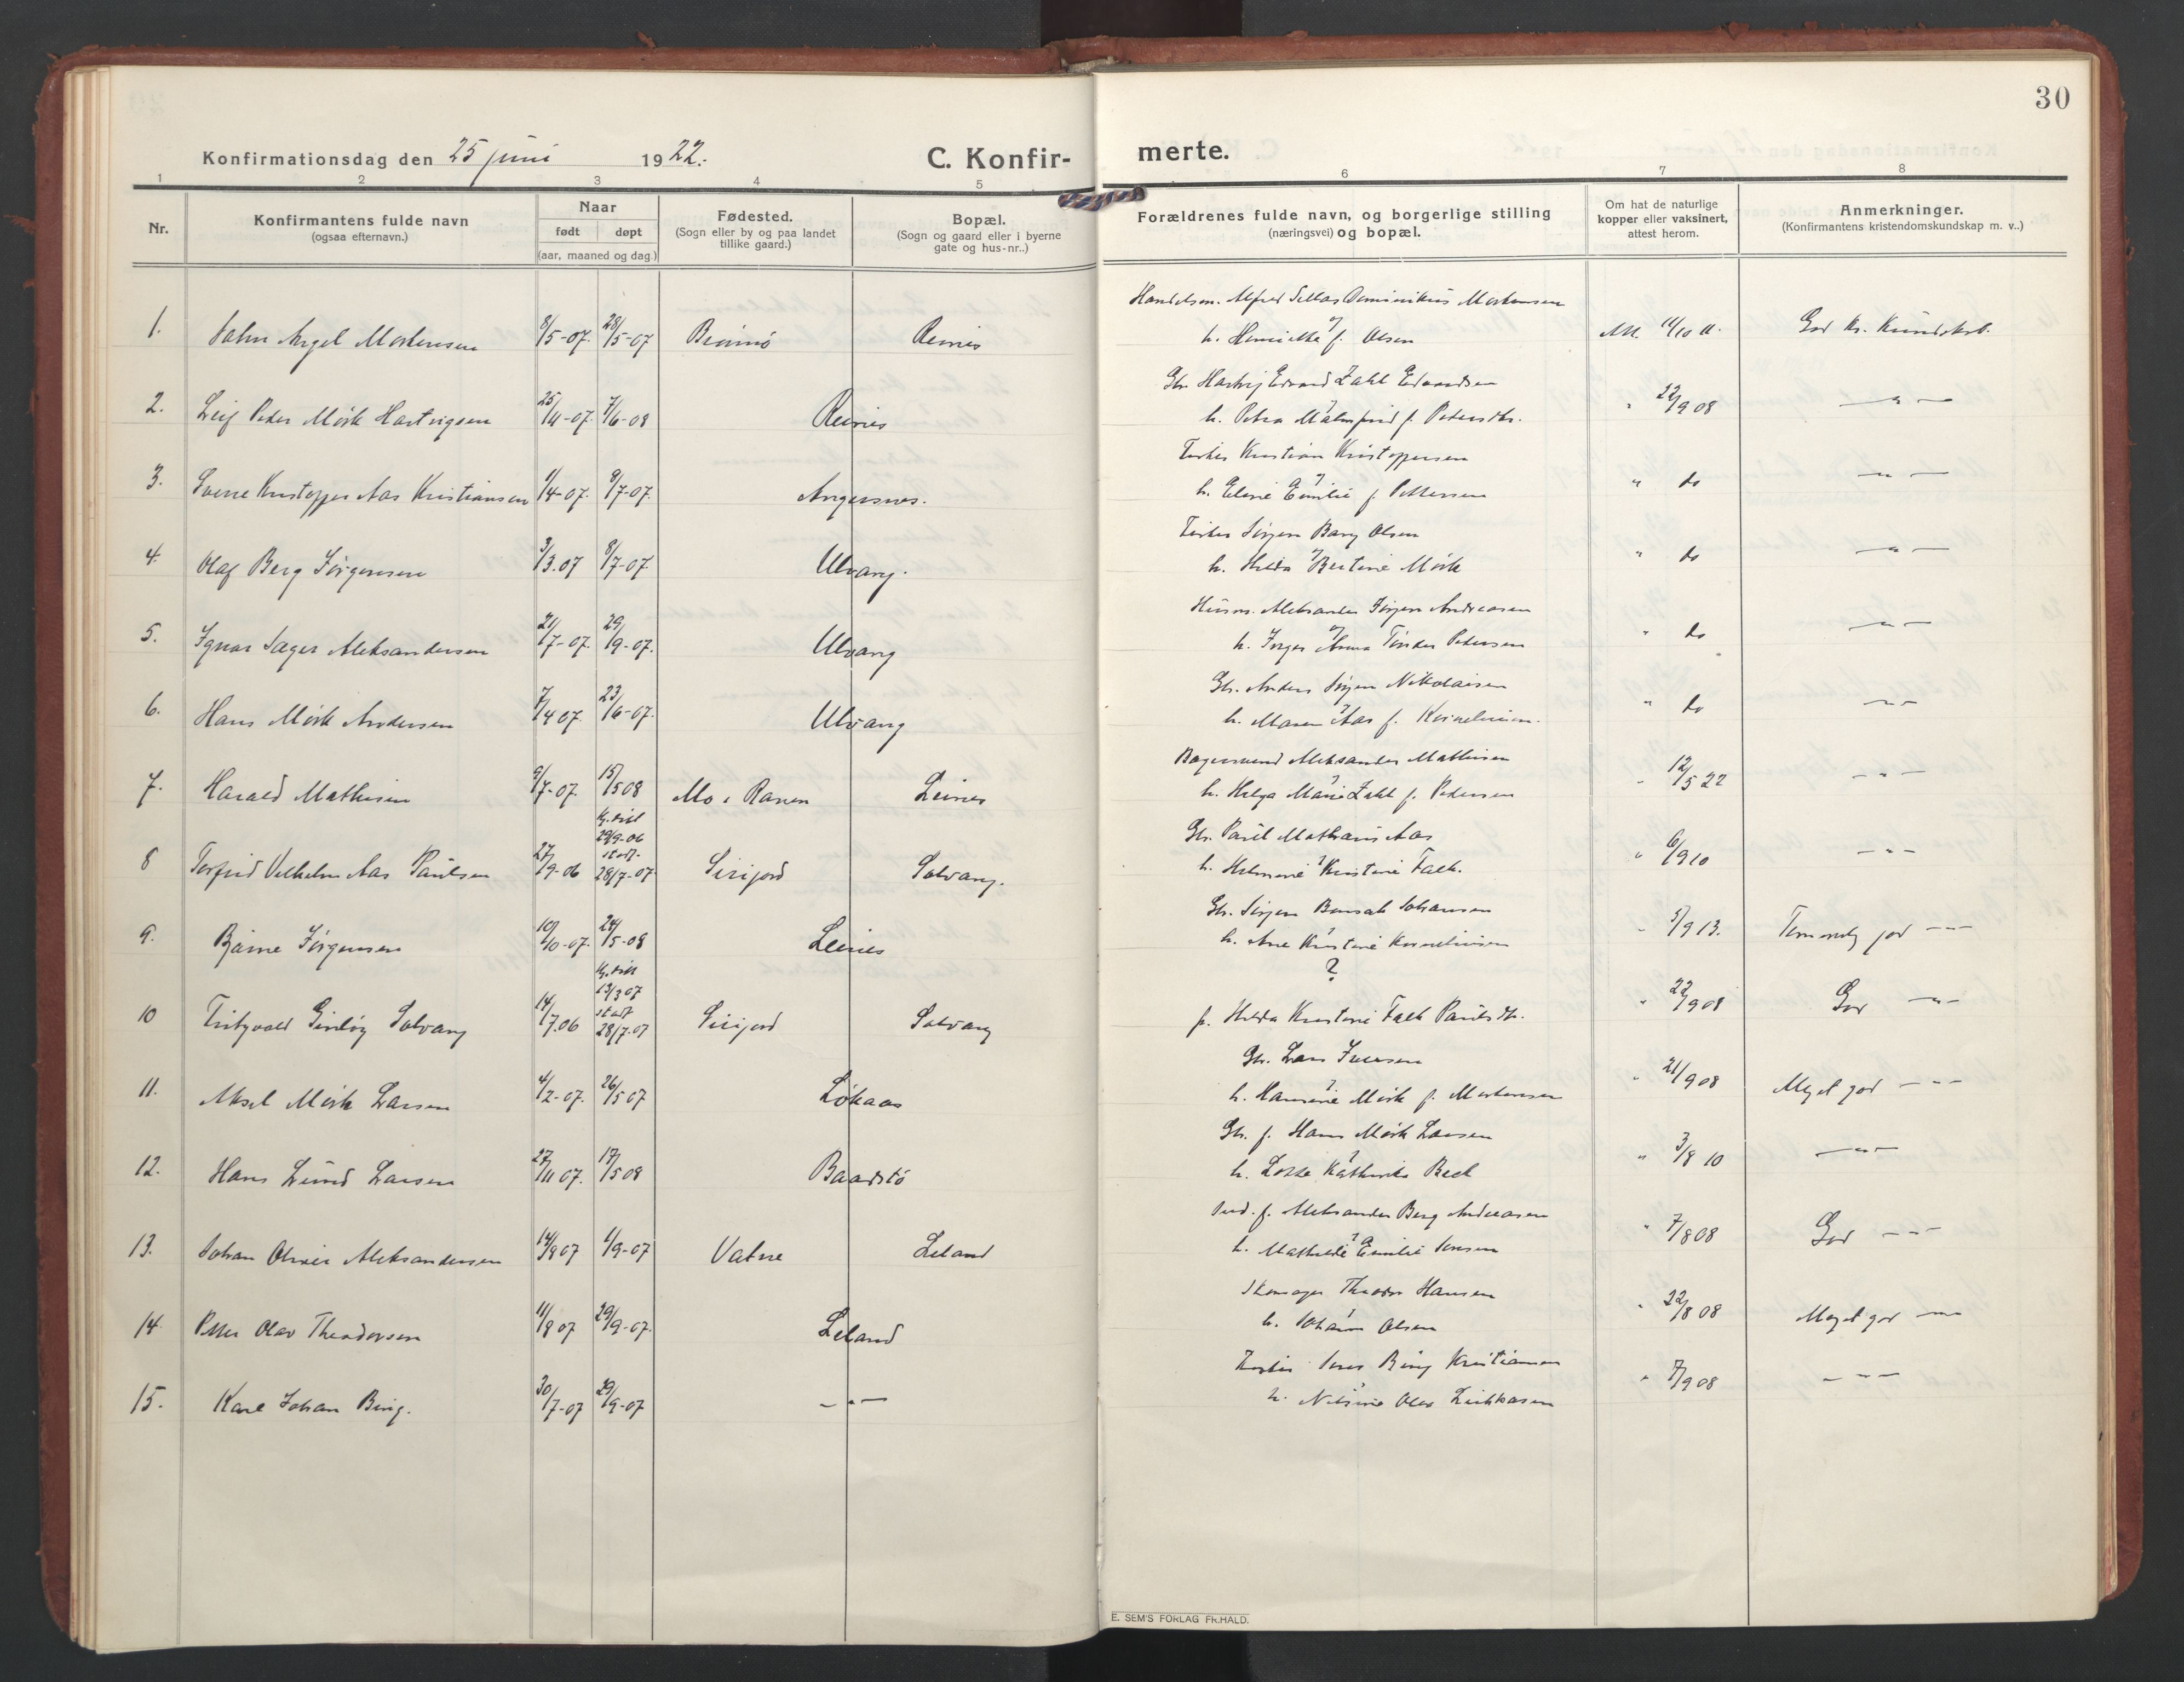 30
Konfirmationsdag den 25 juni 1922.
C. Konfir-
merte.
1 2 3 4 5 6 7 8
Nr.
Konfirmantens fulde navn
(ogsaa efternavn.)
Naar
født døpt
(aar, maaned og dag.)
Fødested.
(Sogn eller by og paa landet
tillike gaard.)
Bopæl.
(Sogn og gaard eller i byerne
gate og hus-nr..)
Forældrenes fulde navn, og borgerlige stilling
(næringsvei) og bopæl.
Om hat de naturlige
kopper eller vaksinert,
attest herom.
Anmerkninger.
(Konfirmantens kristendomskundskap m. v..)
Handelsm. Alfred Sellas Dominikus Mortensen
1. John Angel Mortensen 8/5-07. 28/5-07 Reines
og
h. Henriette f. Olsen
Att. 11/10 11. God Kr. Kundskab.
Gbr. Hartvig Edvard Zahl Edvardsen
2. Leif Peder Mörk Hartvigsen 25/11-07. 7/6-08 Reines
h. Petra Malmfrid f. Pedersdtr.
" 22/9 08 — " —
Fisker Kristian Kristoffersen
3. Sverre Kristoffer Aas Kristiansen 1/4-07. 8/7-07. Angersnes.
h. Eline Emilie f. Pettersen
" do — " —
Fisker Jörgen Berg Olsen
4. Olaf Berg Jörgensen 3/3.07 8/7-07 Ulvang.
h. Hilda Bertine Mörk
" do — " —
Husm. Aleksander Jörgen Andreasen
5. Ignar Jæger Aleksandersen 21/7-07. 29/9-07. Ulvang
h. Inger Anna Tinder Pedersen
" do — " —
Gbr. Anders Jörgen Nikolaisen
6. Hans Mörk Andersen 7/4 07. 23/6-07. Ulvang
h. Maren Aas f. Korneliusen.
" do — " —
Bagersvend Aleksander Mathisen
7. Harald Mathisen 9/7-07. 15/5 08 Mo i Ranen Leines
h. Helga Marie Zahl f. Pedersen
" 12/5 22 — " —
Gbr. Paul Mathias Aas
8 Torfrid Vilhelm Aas Paulsen 27/9-06 29/9-06 28/7-07 Sirijord Solvang.
h. Helmine Kristine Falk.
" 6/9 10 — " —
Gbr. Jörgen Johansen
9. Bjarne Jörgensen 10/10-07. 24/5-08 Leines
h. Ane Kristine Korneliusen
" 5/9 13. Temmelig god — " —
?
10 Solvang 14/7.06 13/3 07 28/7-07 Sirijord Solvang
p. Hilda Kristine Falk Paulsdtr.
" 22/9 08 God — " —
Gbr. Lars
11. Aksel Mörk Larsen 4/2-07. 26/5 07 Lökaas
h. Hansine Mörk f. Mortensen
" 21/9 08 Meget god — " —
Gbr. f. Hans Mörk Larsen
12. Hans Lund Larsen 27/11 07. 17/5 08 Baadstö
h. Lotte Kathinka Beck
" 3/8 10 — " —
f. Aleksander Berg Andreasen
13. Johan Oliver Aleksandersen 14/8 07 1/9-07 Valne Leland
h. Mathilde Emilie Jensen
" 7/8 08 God — " —
Skomager Theodor Hansen
14 Peter Olav Theodorsen 11/8 07 29/9-07. Leland
h. Johanna Olsen
" 22/8 08 Meget god — " —
Fisker Jens Bing Kristiansen
15. Karl Johan Bing. 30/7-07 29/9-07 — " —
h. Nilsine Olea
" 7/9 08 — " —
E. SEM'S FORLAG FR.HALD.